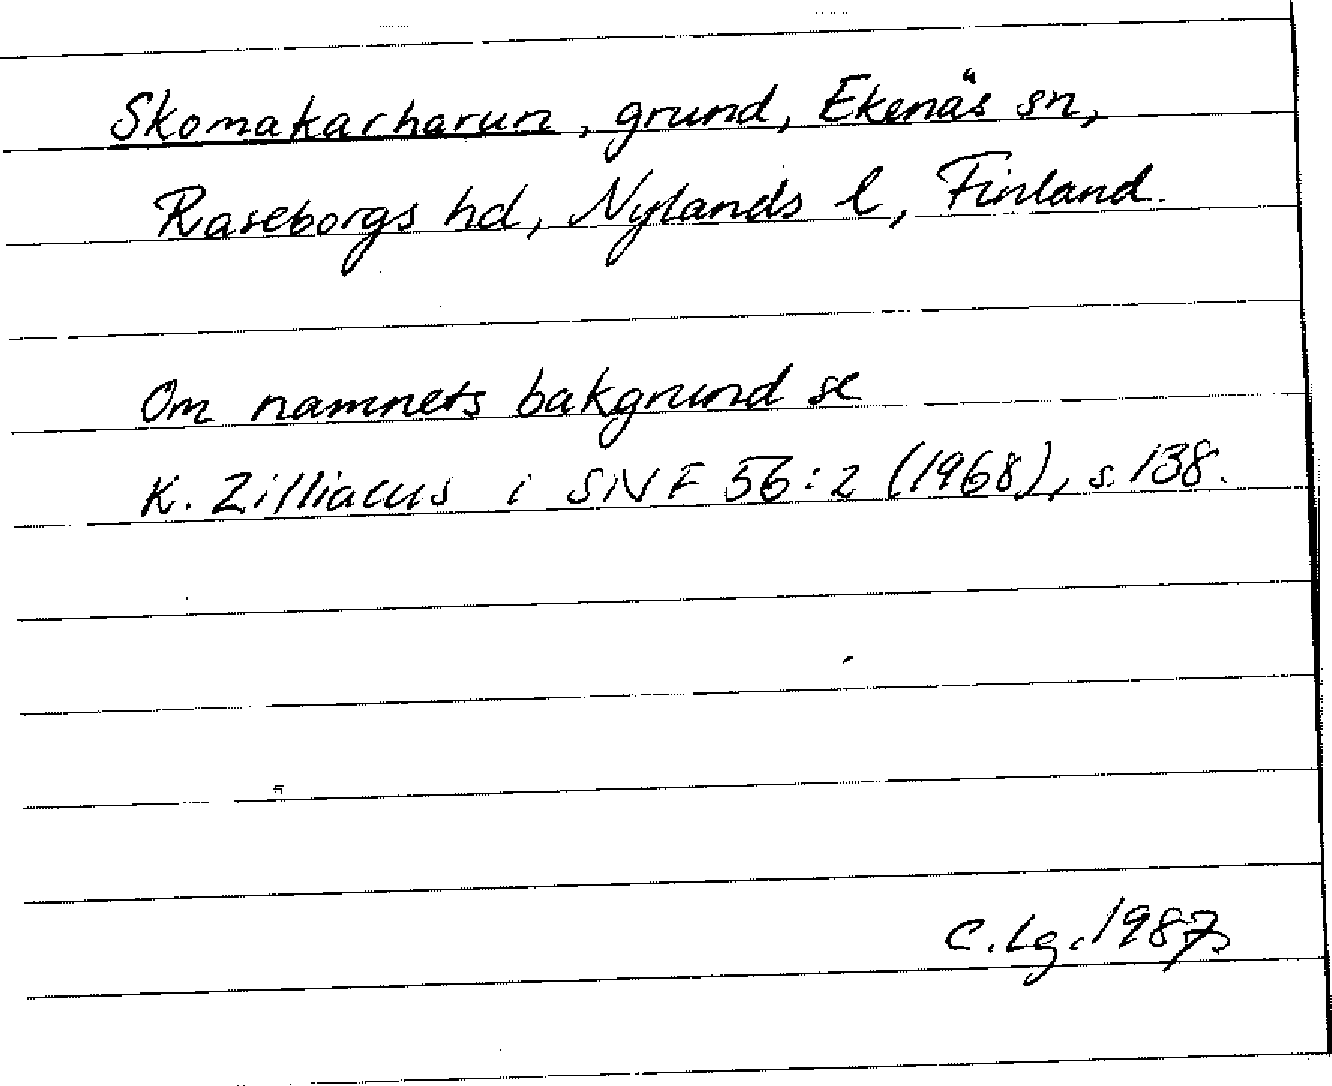 Skomakarharun, grund, Ekenäs sn,
Raseborgs hd, Nylands l, Finland.
Om namnets bakgrund se
K. Zilliacus i SNF 56:2 (1968), s. 138.
C.Lg. 1987